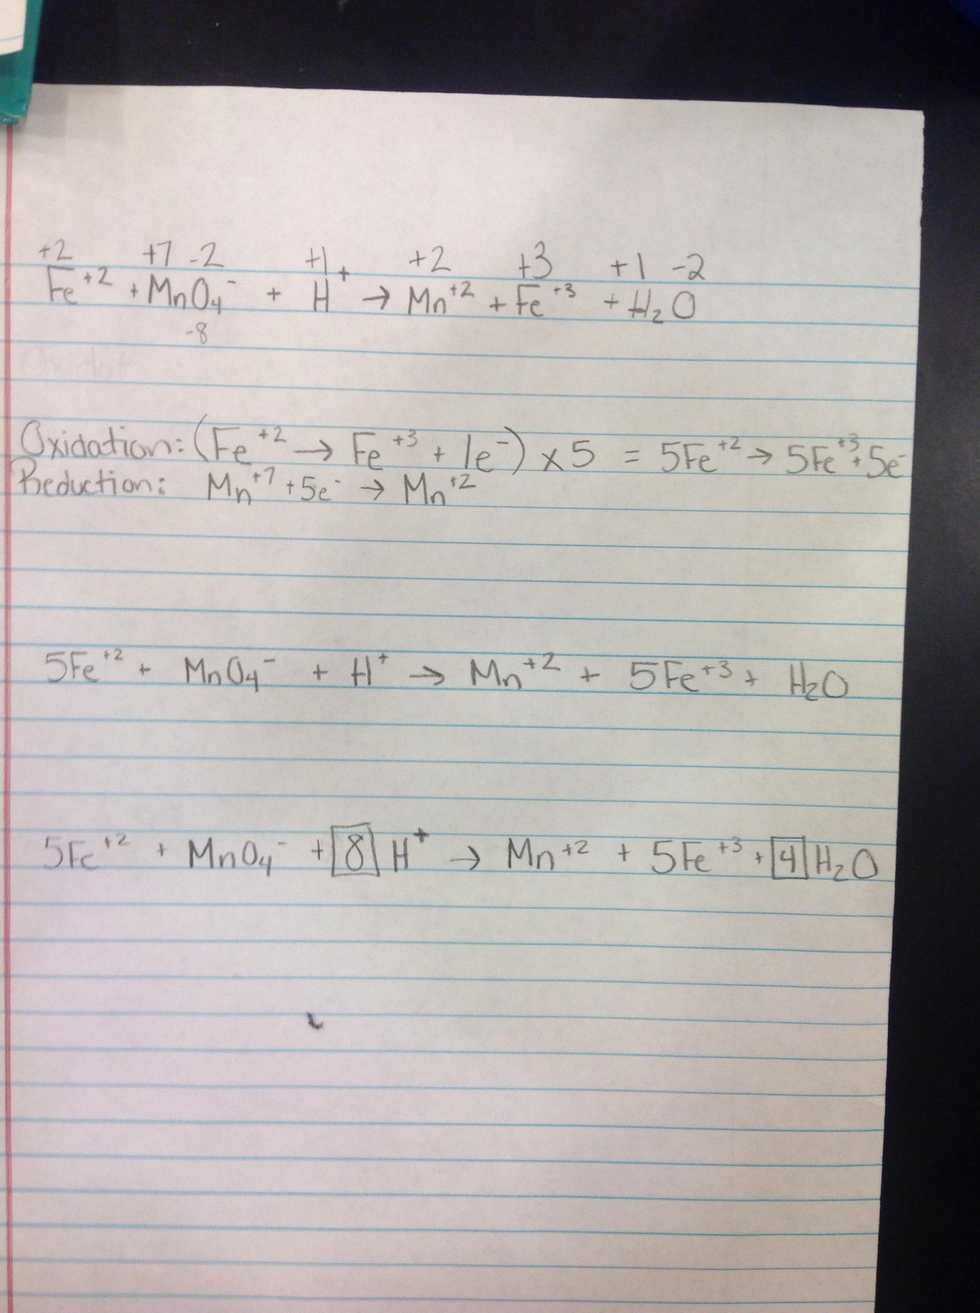 +2 +7 -2 +1 +2 +3 +1 -2
Fe⁺² + MnO₄⁻ + H⁺ → Mn⁺² + Fe⁺³ + H₂O
-8
Oxidation: (Fe⁺² → Fe⁺³ + 1e⁻) × 5 = 5Fe⁺² → 5Fe⁺³ + 5e⁻
Reduction: Mn⁺⁷ + 5e⁻ → Mn⁺²
5Fe⁺² + MnO₄⁻ + H⁺ → Mn⁺² + 5Fe⁺³ + H₂O
5Fe⁺² + MnO₄⁻ + 8 H⁺ → Mn⁺² + 5Fe⁺³ + 4 H₂O